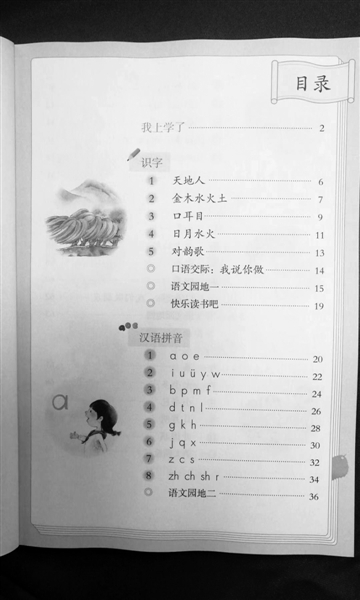 目录
我上学了 2
识字
1 天地人 6
2 金木水火土 7
3 口耳目 9
4 日月水火 11
5 对韵歌 13
口语交际：我说你做 14
语文园地一 15
快乐读书吧 19
汉语拼音
1 a o e 20
2 i u ü y w 22
3 b p m f 24
4 d t n l 26
5 g k h 28
6 j q x 30
7 z c s 32
8 zh ch sh r 34
语文园地二 36
a